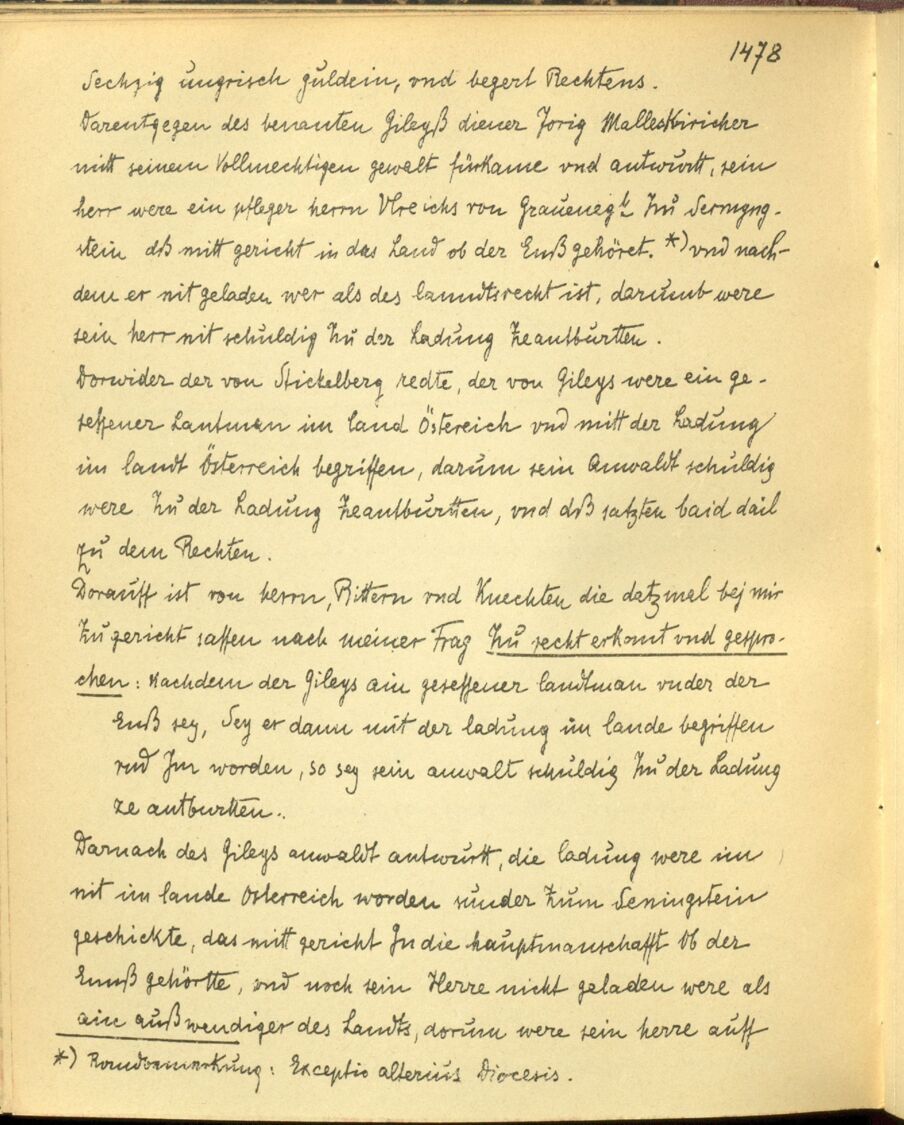 1478
Sechzig ungrisch guldein, vnd begert Rechtens.
Darentgegen des benanten Gileyß diener Jorig Malleskiricher
mitt seinem Vollmechtigen gewalt fürkame vnd antwurtt, sein
herr were ein pfleger herrn Vlreichs von Grauenegk zu Sermyng-
stein dß mitt gericht in das Land ob der Enß gehöret. *) vnd nach-
dem er nit geladen wer als des lanndtsrecht ist, darumb were
sein herr nit schuldig zu der Ladung zeantburtten.
Dorwider der von Stickelberg redte, der von Gileys were ein ge-
seßener Lantman im land Östereich vnd mitt der Ladung
im landt Österreich begriffen, darum sein Anwaldt schuldig
were zu der Ladung zeantburtten, vnd dß satzten baid dail
zu dem Rechten.
Dorauff ist von herrn, Rittern vnd Knechten die datzmal bej mir
zu gericht saßen nach meiner Frag zu recht erkant vnd gespro-
chen: Nachdem der Gileys ain geseßener landtman vnder der
Enß sey, Sey er dann mit der ladung im lande begriffen
vnd Im worden, so sey sein anwalt schuldig zu der Ladung
ze antburtten.
Darnach des Gileys anwaldt antwurtt, die ladung were im
nit im lande Osterreich worden sunder zum Seningstein
geschickte, das mitt gericht In die hauptmanschafft Ob der
Ennß gehörtte, vnd noch sein Herre nicht geladen were als
ain außwendiger des Landts, dorum were sein herre auff
*) Randbemerkung: Exceptio alterius Diocesis.